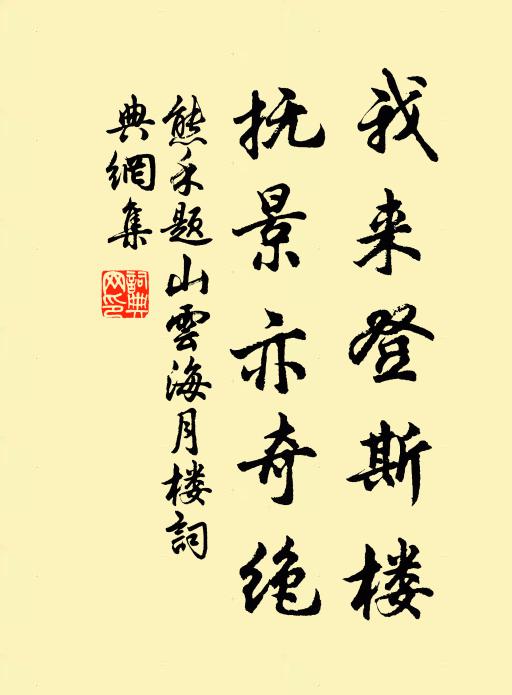 我来登斯楼
抚景亦奇绝
熊禾题山雲海月楼詞
典網集
詞典网印